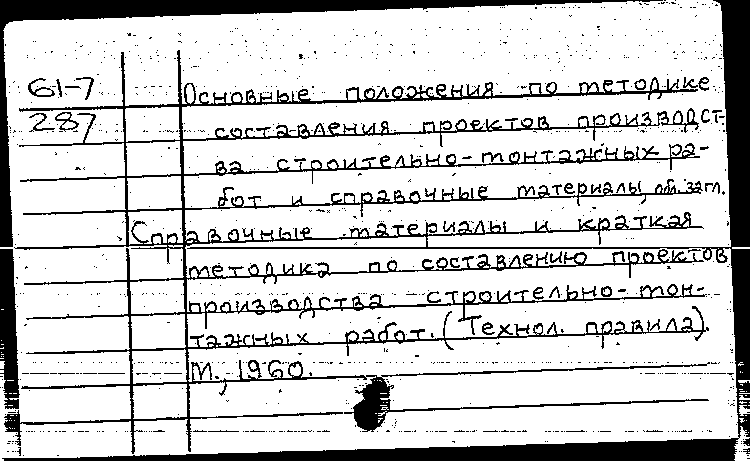 61-7
287
Основные положения по методике
составления проектов производст-
ва строительно-монтажных ра-
бот и справочные материалы, об. загл.
Справочные материалы и краткая
методика по составлению проектов
производства строительно-мон-
тажных работ. (Технол. правила).
М., 1960.